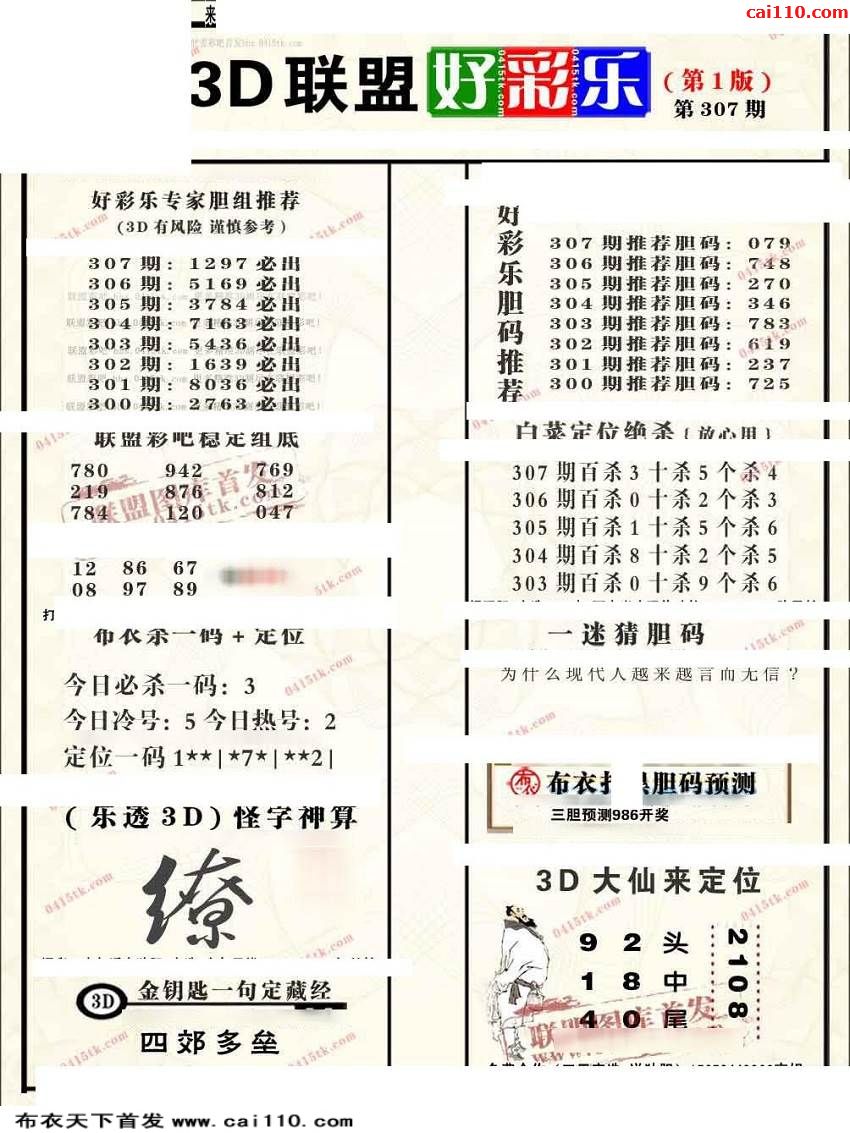 来
cai110.com
3D联盟好彩乐(第1版)
第307期
好彩乐专家胆组推荐
(3D有风险 谨慎参考)
307期:1297必出
306期:5169必出
305期:3784必出
304期:7163必出
303期:5436必出
302期:1639必出
301期:8036必出
300期:2763必出
联盟彩吧稳定组底
780 942 769
219 876 812
784 120 047
12 86 67
08 97 89
打
布衣杀一码+定位
今日必杀一码:3
今日冷号:5今日热号:2
定位一码1**|*7*|**2|
(乐透3D)怪字神算
缭
3D 金钥匙一句定藏经
四郊多垒
好彩乐胆码推荐
307期推荐胆码:079
306期推荐胆码:748
305期推荐胆码:270
304期推荐胆码:346
303期推荐胆码:783
302期推荐胆码:619
301期推荐胆码:237
300期推荐胆码:725
白菜定位绝杀{放心用}
307期百杀3十杀5个杀4
306期百杀0十杀2个杀3
305期百杀1十杀5个杀6
304期百杀8十杀2个杀5
303期百杀0十杀9个杀6
一迷猜胆码
为什么现代人越来越言而无信?
布衣 胆码预测
三胆预测986开奖
3D大仙来定位
9 2 头
1 8 中
4 0 尾
2108
联盟图库首发
0415tk.com
布衣天下首发 www.cai110.com